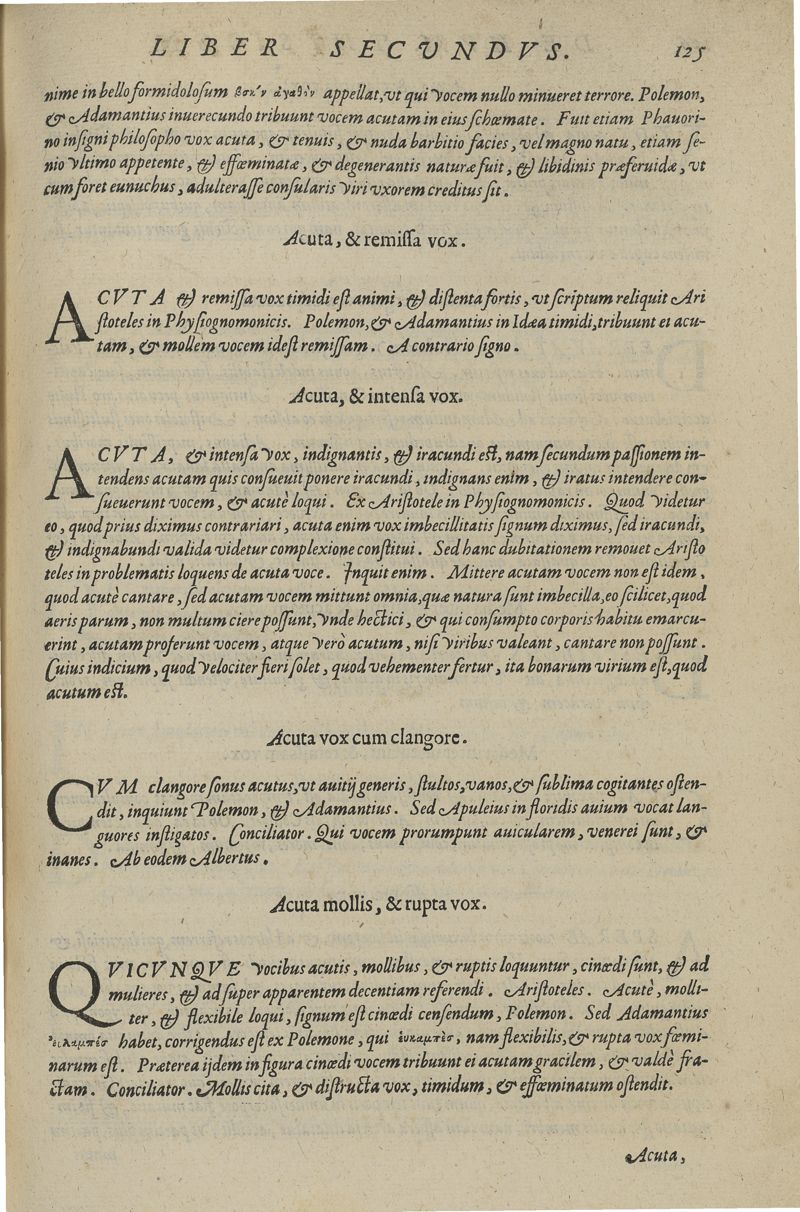 LIBER SECVNDVS. 125
nime in bello formidolosum βοὴν ἀγαθὸν appellat, vt qui vocem nullo minueret terrore. Polemon,
& Adamantius inuerecundo tribuunt vocem acutam in eius schœmate. Fuit etiam Phauori-
no insigni philosopho vox acuta, & tenuis, & nuda barbitio facies, vel magno natu, etiam se-
nio vltimo appetente, & effœminatæ, & degenerantis naturæ fuit, & libidinis præferuidæ, vt
cum foret eunuchus, adulterasse consularis viri vxorem creditus sit.
Acuta, & remissa vox.
ACVTA & remissa vox timidi est animi, & distenta fortis, vt scriptum reliquit Ari
stoteles in Physiognomonicis. Polemon, & Adamantius in Idæa timidi, tribuunt ei acu-
tam, & mollem vocem idest remissam. A contrario signo.
Acuta, & intensa vox.
ACVTA, & intensa vox, indignantis, & iracundi est, nam secundum passionem in-
tendens acutam quis consueuit ponere iracundi, indignans enim, & iratus intendere con-
sueuerunt vocem, & acutè loqui. Ex Aristotele in Physiognomonicis. Quod videtur
eo, quod prius diximus contrariari, acuta enim vox imbecillitatis signum diximus, sed iracundi,
& indignabundi valida videtur complexione constitui. Sed hanc dubitationem remouet Aristo
teles in problematis loquens de acuta voce. Inquit enim. Mittere acutam vocem non est idem,
quod acutè cantare, sed acutam vocem mittunt omnia, quæ natura sunt imbecilla, eo scilicet, quod
aeris parum, non multum ciere possunt, vnde hectici, & qui consumpto corporis habitu emarcu-
erint, acutam proferunt vocem, atque verò acutum, nisi viribus valeant, cantare non possunt.
Cuius indicium, quod velociter fieri solet, quod vehementer fertur, ita bonarum virium est, quod
acutum est.
Acuta vox cum clangore.
CVM clangore sonus acutus, vt auitij generis, stultos, vanos, & sublima cogitantes osten-
dit, inquiunt Polemon, & Adamantius. Sed Apuleius in floridis auium vocat lan-
guores instigatos. Conciliator. Qui vocem prorumpunt auicularem, venerei sunt, &
inanes. Ab eodem Albertus.
Acuta mollis, & rupta vox.
QVICVNQVE vocibus acutis, mollibus, & ruptis loquuntur, cinœdi sunt, & ad
mulieres, & ad super apparentem decentiam referendi. Aristoteles. Acutè, molli-
ter, & flexibile loqui, signum est cinœdi censendum, Polemon. Sed Adamantius
habet, corrigendus est ex Polemone, qui ἐυκαμπὲσ, nam flexibilis, & rupta vox fœmi-
narum est. Præterea ijdem in figura cinœdi vocem tribuunt ei acutam gracilem, & valdè fra-
ctam. Conciliator. Mollis cita, & distructa vox, timidum, & effœminatum ostendit.
Acuta,